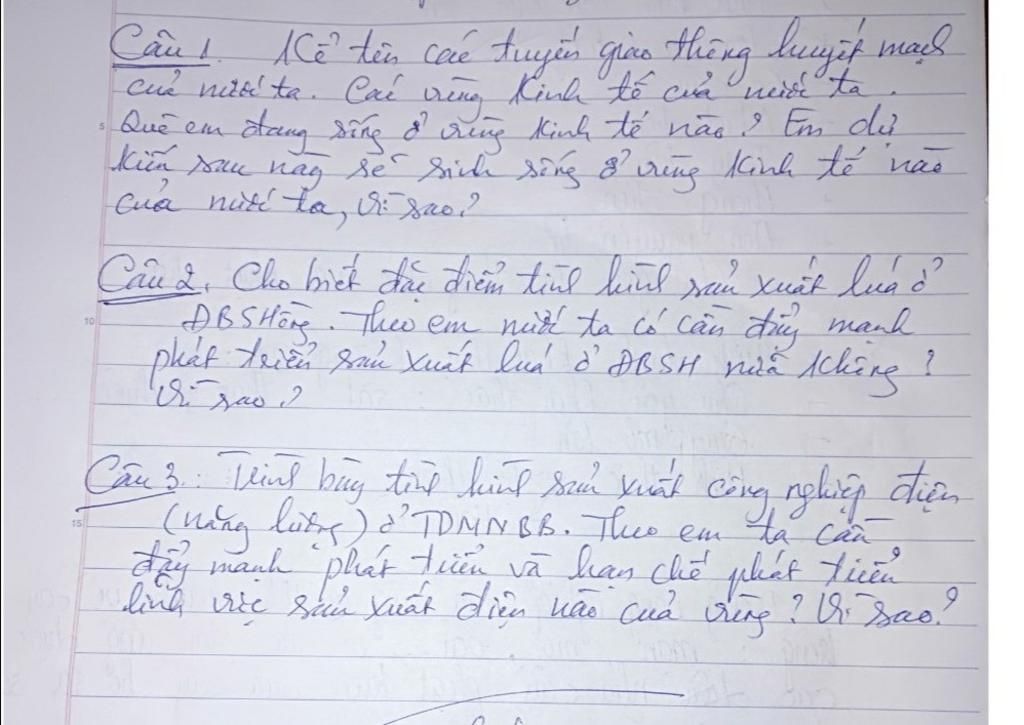 Câu 1. Kể tên các tuyến giao thông huyết mạch
của nước ta. Các vùng kinh tế của nước ta.
Quê em đang sống ở vùng kinh tế nào? Em dự
kiến sau này sẽ sinh sống ở vùng kinh tế nào
của nước ta, vì sao?
Câu 2. Cho biết đặc điểm tình hình sản xuất lúa ở
ĐBSHồng. Theo em nước ta có cần đẩy mạnh
phát triển sản xuất lúa ở ĐBSH nữa không?
Vì sao?
Câu 3. Trình bày tình hình sản xuất công nghiệp điện
(năng lượng) ở TDMNBB. Theo em ta cần
đẩy mạnh phát triển và hạn chế phát triển
lĩnh vực sản xuất điện nào của vùng? Vì sao?